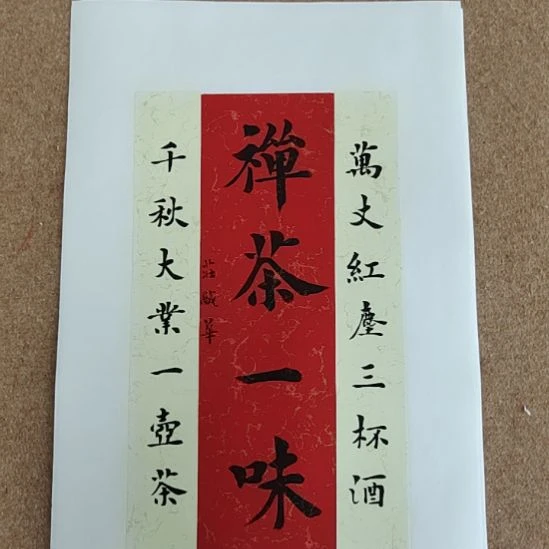 萬丈紅塵三杯酒
禪茶一味
千秋大業一壺茶